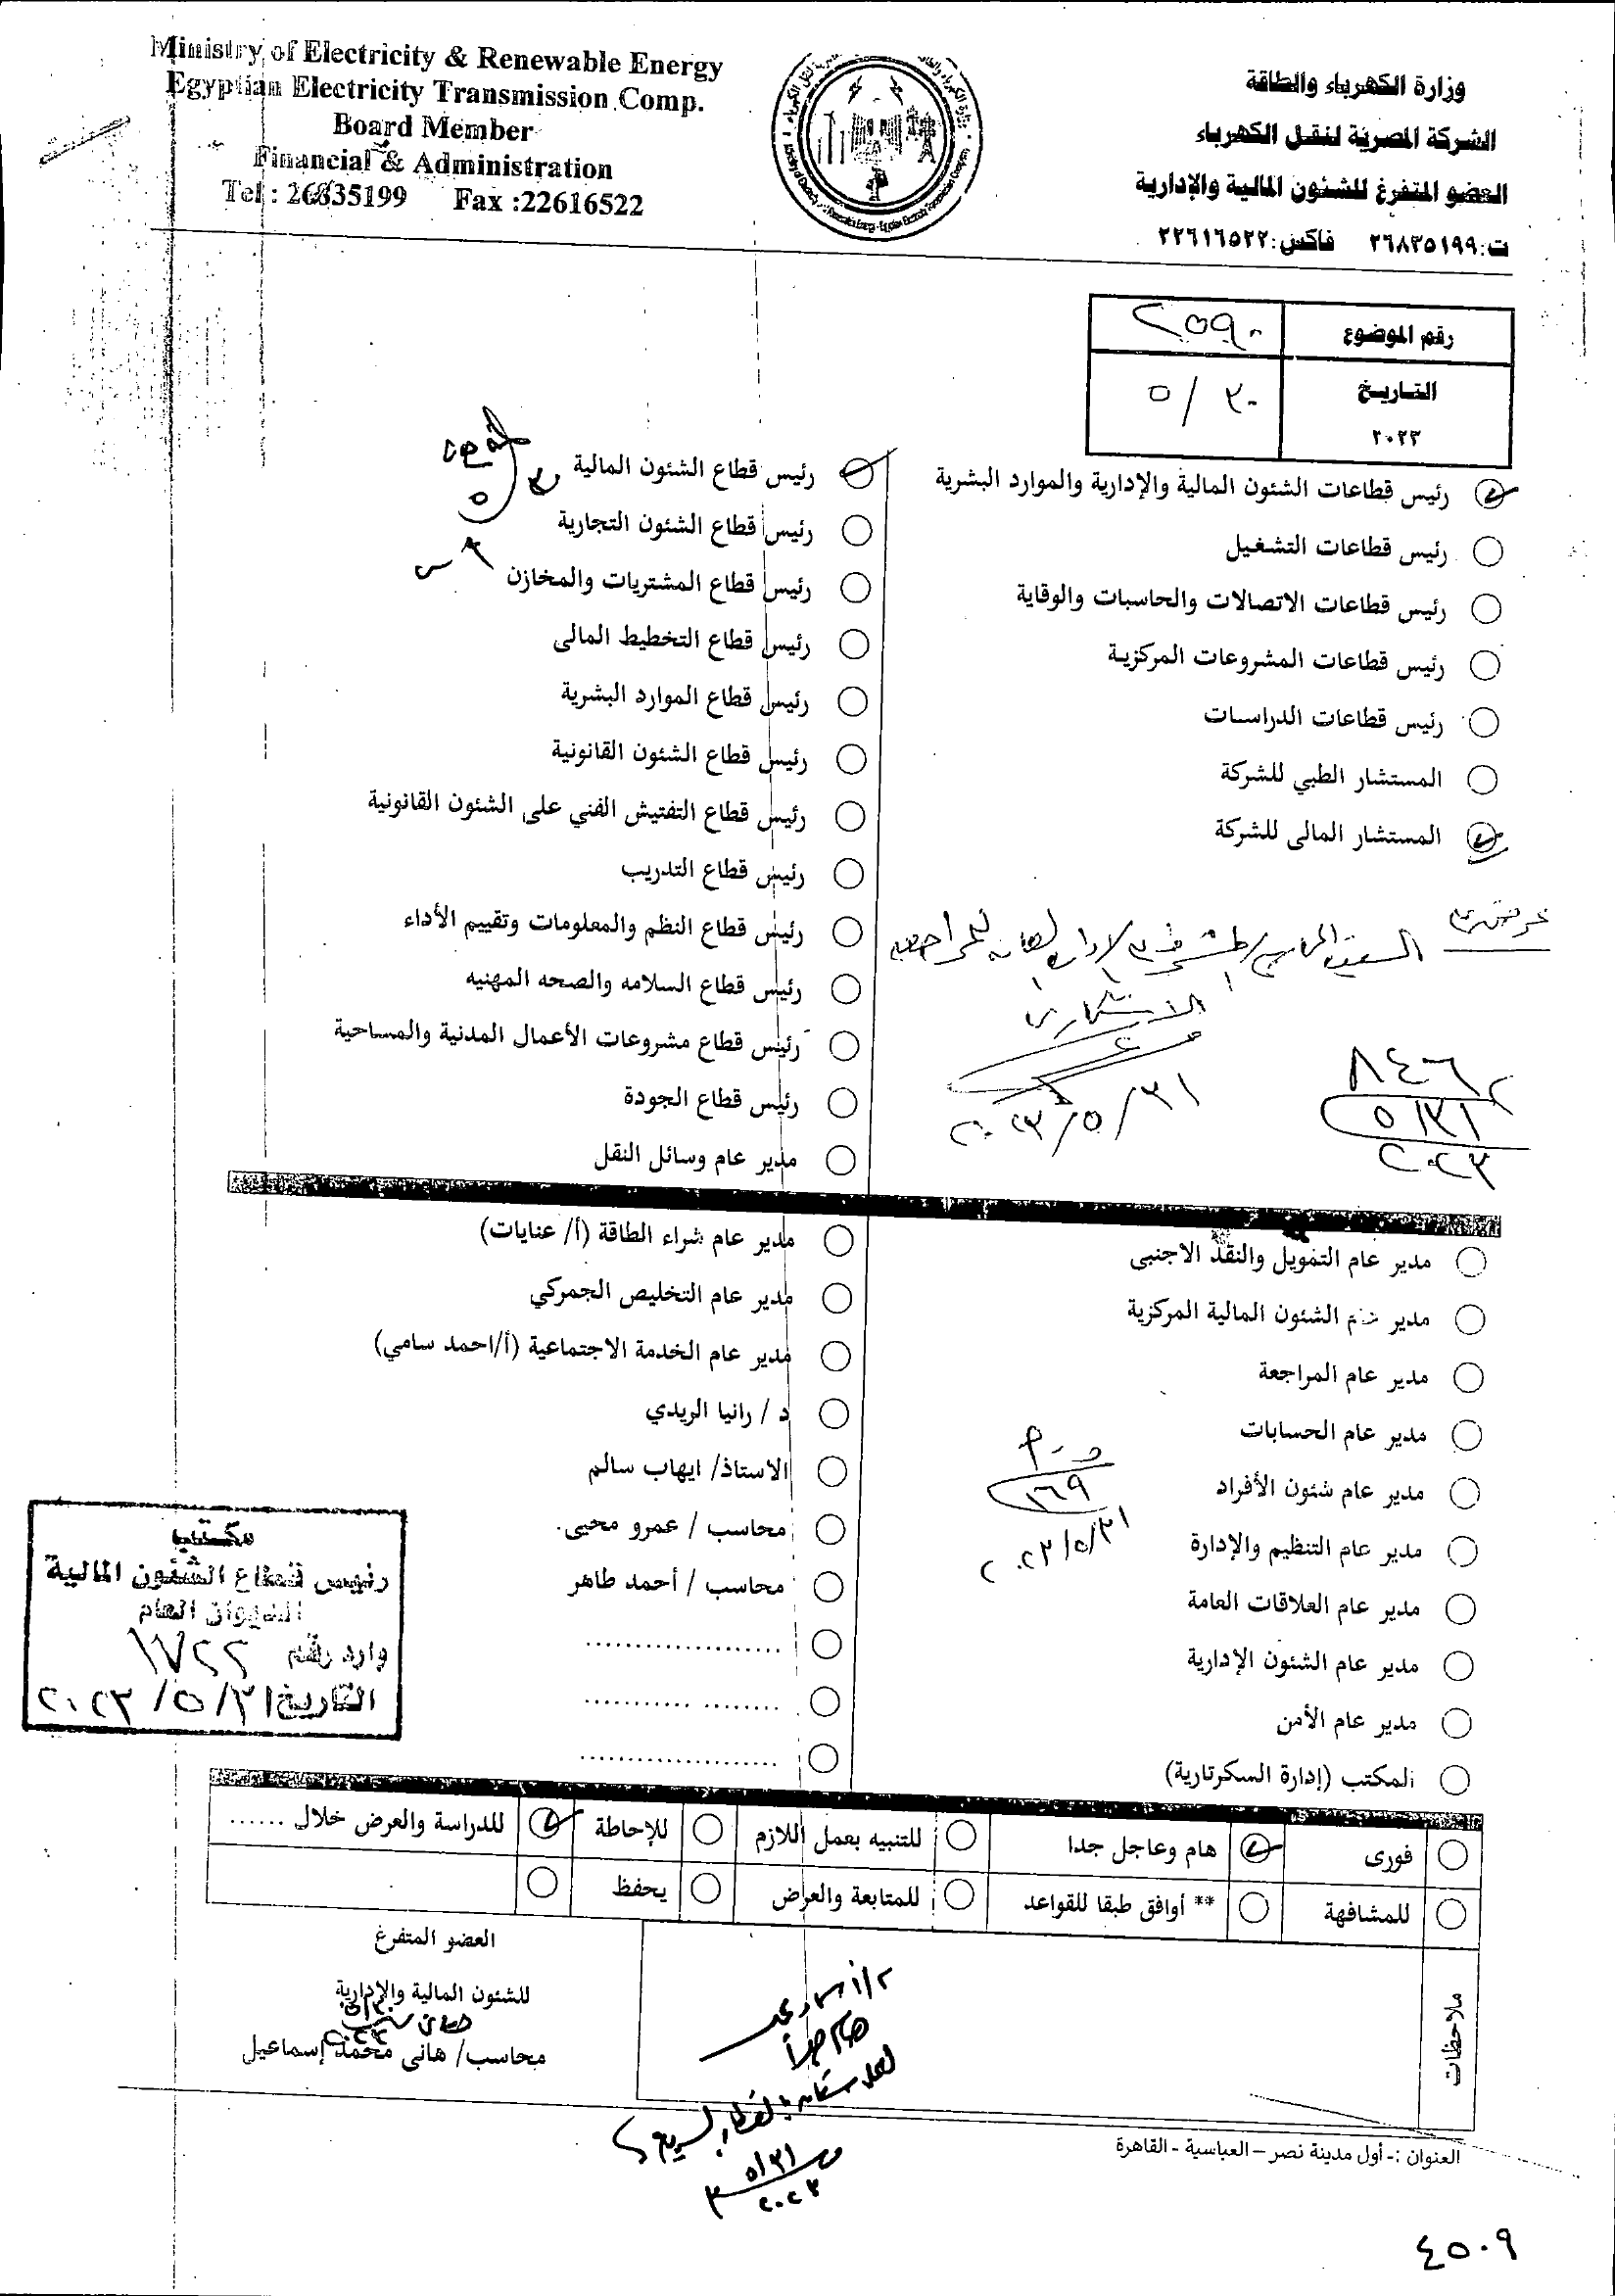 Ministry of Electricity & Renewable Energy
Egyptian Electricity Transmission Comp.
Board Member
Financial & Administration
Tel : 26835199 Fax :22616522
وزارة الكهرباء والطاقة
الشركة المصرية لنقل الكهرباء
العضو المتفرغ للشئون المالية والإدارية
ت:٢٦٨٣٥١٩٩ فاكس:٢٢٦١٦٥٢٢
رقم الموضوع ٢٥٩٠
التاريخ ٣٠ / ٥
٢٠٢٣
رئيس قطاعات الشئون المالية والإدارية والموارد البشرية
رئيس قطاعات التشغيل
رئيس قطاعات الاتصالات والحاسبات والوقاية
رئيس قطاعات المشروعات المركزية
رئيس قطاعات الدراسات
المستشار الطبي للشركة
المستشار المالى للشركة
٨٤٦٢
٥/٣١
٢٠٢٣
٢٠٢٣/٥/٣١
رئيس قطاع الشئون المالية
رئيس قطاع الشئون التجارية
رئيس قطاع المشتريات والمخازن
رئيس قطاع التخطيط المالى
رئيس قطاع الموارد البشرية
رئيس قطاع الشئون القانونية
رئيس قطاع التفتيش الفني على الشئون القانونية
رئيس قطاع التدريب
رئيس قطاع النظم والمعلومات وتقييم الأداء
رئيس قطاع السلامه والصحه المهنيه
رئيس قطاع مشروعات الأعمال المدنية والمساحية
رئيس قطاع الجودة
مدير عام وسائل النقل
مدير عام التمويل والنقد الاجنبى
مدير عام الشئون المالية المركزية
مدير عام المراجعة
مدير عام الحسابات
مدير عام شئون الأفراد
مدير عام التنظيم والإدارة
مدير عام العلاقات العامة
مدير عام الشئون الإدارية
مدير عام الأمن
المكتب (إدارة السكرتارية)
١٦٩
٢٠٢٣/٥/٣١
مدير عام شراء الطاقة (أ/ عنايات)
مدير عام التخليص الجمركي
مدير عام الخدمة الاجتماعية (أ/احمد سامي)
د / رانيا الريدي
الاستاذ/ ايهاب سالم
محاسب / عمرو محيى.
محاسب / أحمد طاهر
....................
........ ...........
....................
مكتب
رئيس قطاع الشئون المالية
الديوان العام
وارد رقم ١٧٢٢
التاريخ ٢٠٢٣/٥/٣١
فورى هام وعاجل جدا للتنبيه بعمل اللازم للإحاطة للدراسة والعرض خلال ......
للمشافهة ** أوافق طبقا للقواعد للمتابعة والعرض يحفظ
ملاحظات
٥/٣١
٢٠٢٣
العضو المتفرغ
للشئون المالية والإدارية
محاسب/ هانى محمد إسماعيل
العنوان :- أول مدينة نصر – العباسية - القاهرة
٤٥٠٩